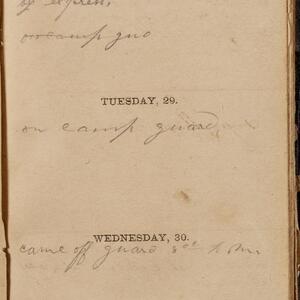 by express
on camp gua
TUESDAY, 29.
on camp guard
WEDNESDAY, 30.
came off guard